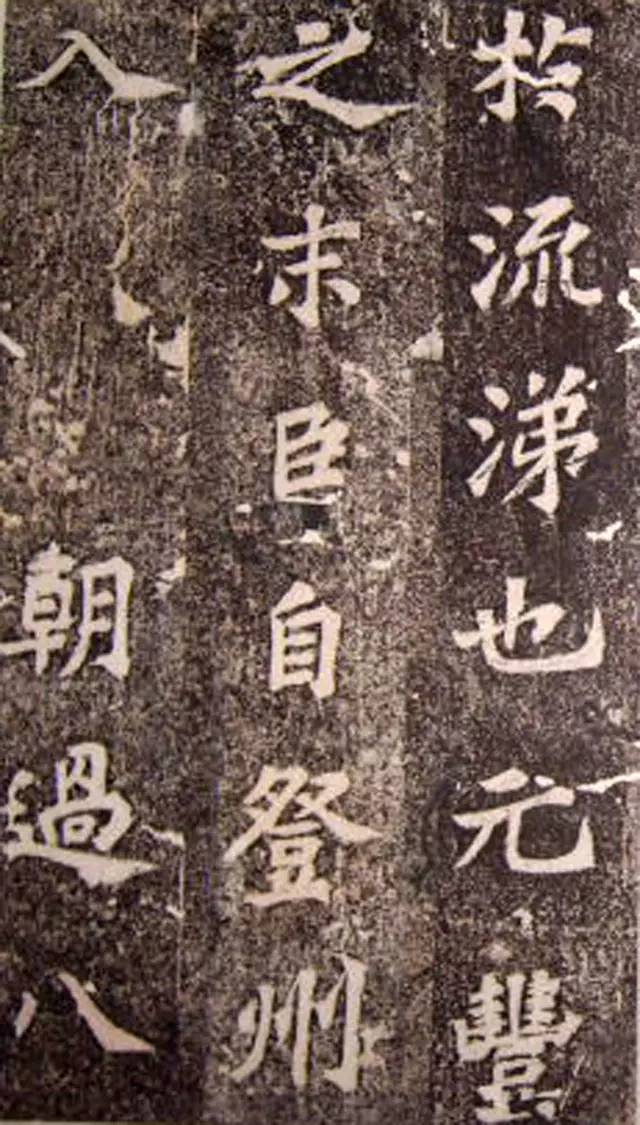 於流涕也元豐
之末臣自登州
入朝過八